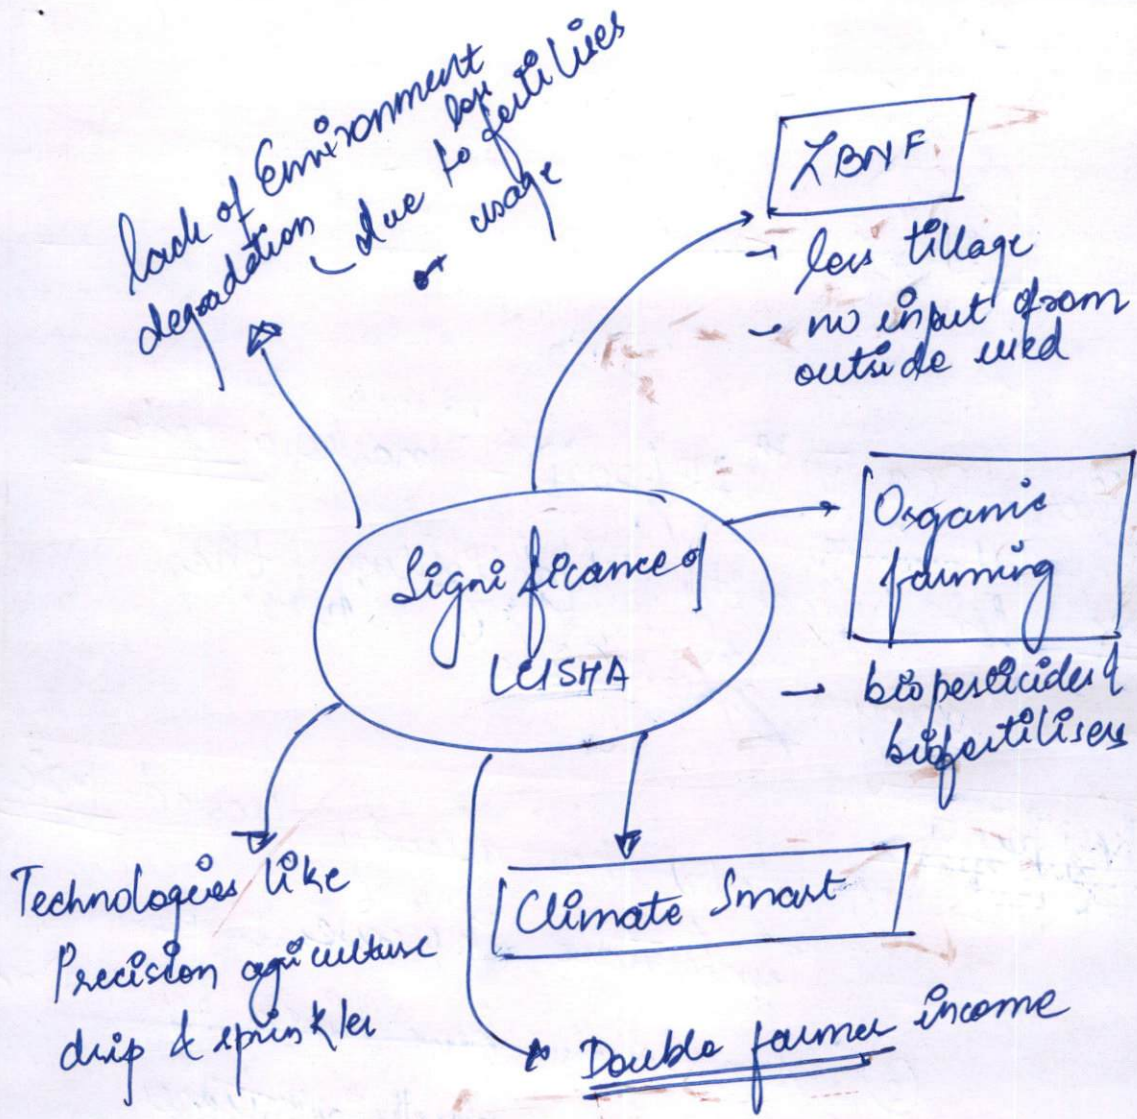 lack of Environment
degradation
due to less
fertilises
usage
ZBNF
→ less tillage
→ no input from
outside used
Organic
farming
→ biopesticides &
biofertilisers
Significance of
LEISHA
Technologies like
Precision agriculture
drip & sprinkler
Climate Smart
Double farmer income